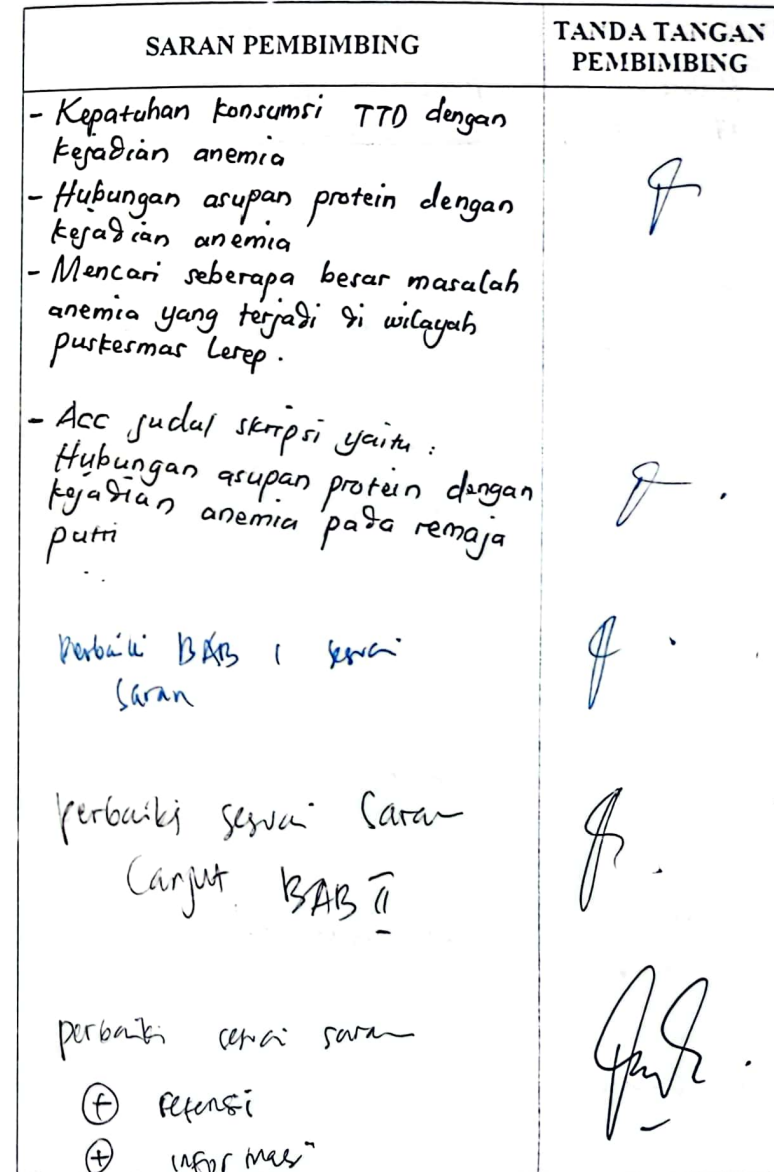 SARAN PEMBIMBING
TANDA TANGAN
PEMBIMBING
- Kepatuhan konsumsi TTD dengan
kejadian anemia
- Hubungan asupan protein dengan
kejadian anemia
- Mencari seberapa besar masalah
anemia yang terjadi di wilayah
puskesmas Lerep.
- Acc judul skripsi yaitu :
Hubungan asupan protein dengan
kejadian anemia pada remaja
putri
Perbaiki BAB 1 sesuai
saran
perbaiki sesuai saran
Lanjut BAB II
perbaiki sesuai saran
+ refensi
+ informasi